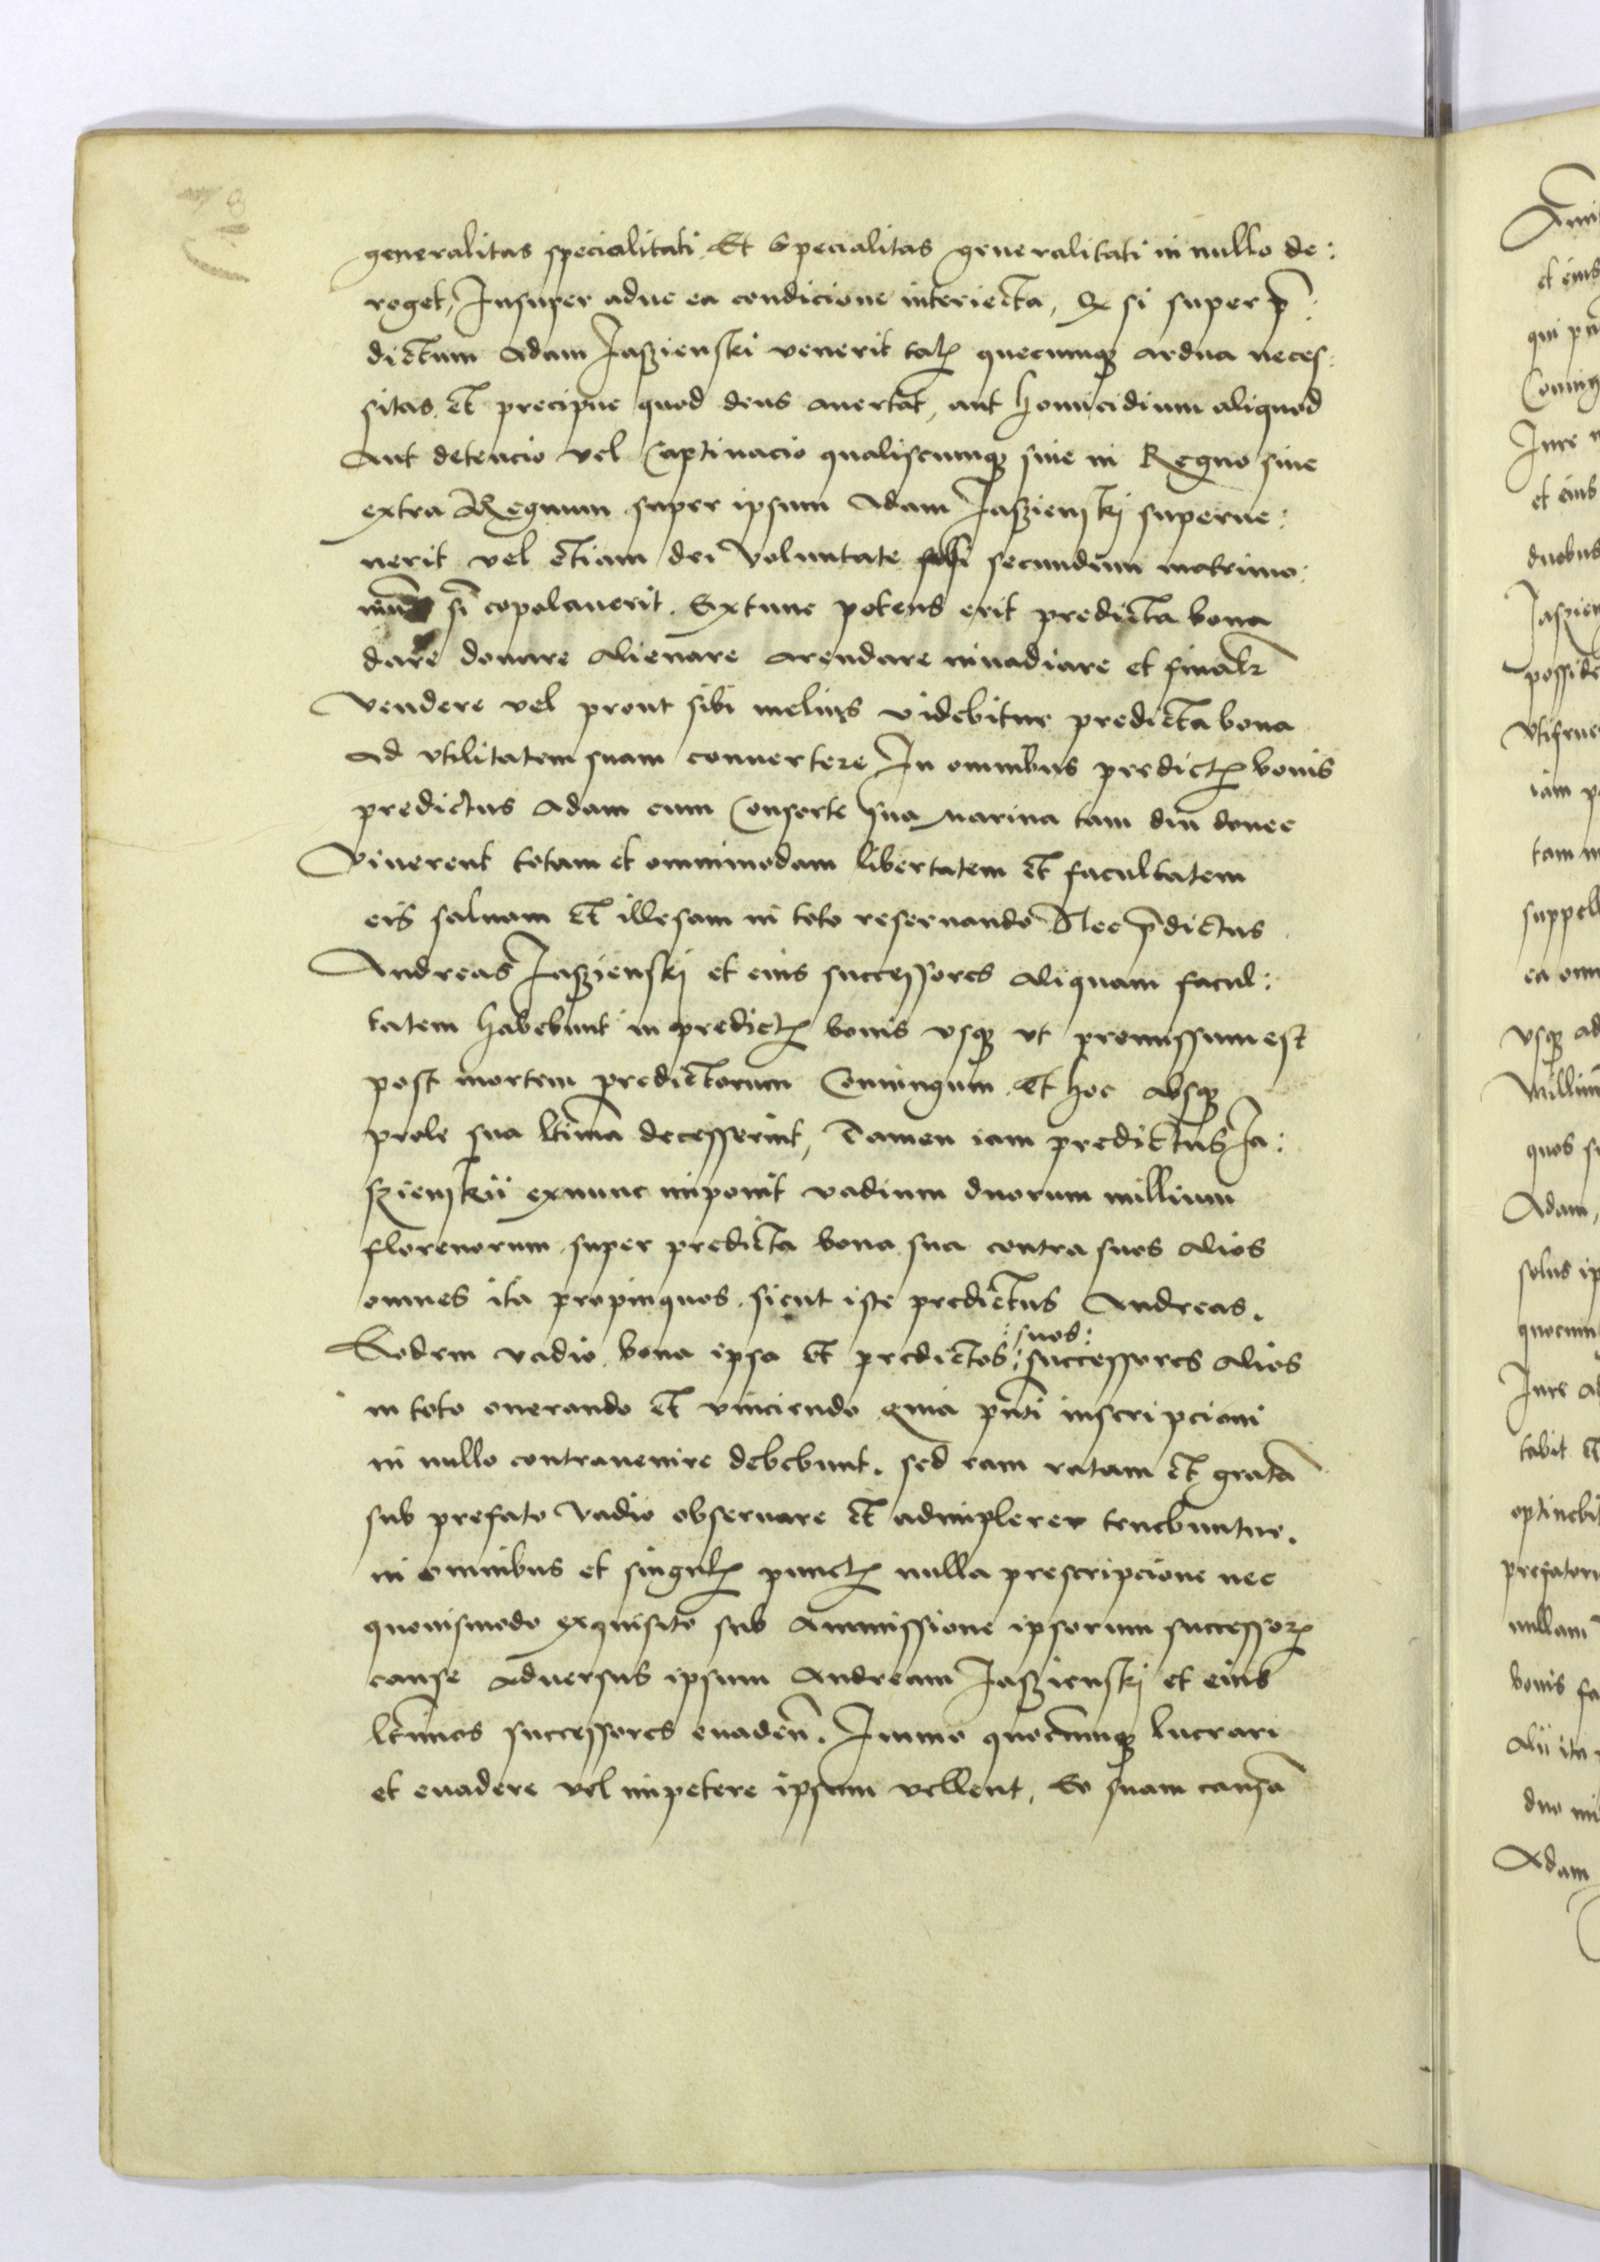 generalitas specialitati Et Specialitas generalitati in nullo de:
roget, Insuper aduc ea condicione interiecta, Q si super p̄:
dictum Adam Jaszienski venerit talꝭ quecumqꝫ ardua neces:
sitas et precipue quod deus auertat, aut homicidium aliquod
Aut detencio vel Captiuacio qualiscumqꝫ siue in Regno siue
extra Regnum super ipsum Adam Jaszienskj superue:
nerit vel etiam dei Voluntate secundum matrimo:
niū si copolauerit. Extunc potens erit predicta bona
dare donare Alienare Arendare inuadiare et finalr̄
Vendere vel prout sibi melius videbitur predicta bona
Ad vtilitatem suam conuertere In omnibus predictꝭ bonis
predictus Adam cum Consorte sua marina tam diu donec
Viuerent totam et omnimodam libertatem et facultatem
eis saluam et illesam in toto reseruando Nec p̄dictus
Andreas Jaszienskj et eius successores Aliquam facul:
tatem habebunt in predictꝭ bonis vsqꝫ vt premissum est
post mortem predictorum Coniugum et hoc absqꝫ
prole sua ltima decesserint, Tamen iam predictus Ja:
szienskii exnunc imponit vadium duorum millium
florenorum super predicta bona sua contra suos Alios
omnes ita propinquos sicut iste predictus Andreas.
:suos:
Eodem vadio bona ipsa et predictos: successores Alios
in toto onerando et vinciendo quia pn̄ti inscripcioni
in nullo contrauenire debebunt. sed eam ratam et gratā
sub prefato Vadio obseruare et adimplerer tenebuntur.
in omnibus et singulꝭ punctꝭ nulla prescripcione nec
quouismodo exquisito sub Ammissione ipsorum successorꝭ
cause Aduersus ipsum Andream Jaszienskj et eius
ltimos successores euaden̄. Immo quocumqꝫ lucrari
et euadere vel impetere ipsum vellent, Eo suam causā